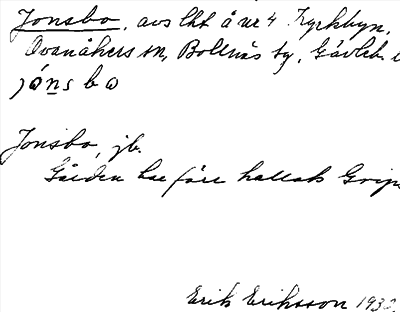 Jonsbo, avs lht å nr 4 Kyrkbyn,
Ovanåkers sn, Bollnäs tg, Gävleb. l
jónsbo
Jonsbo, jb.
Gården har förr hallats Grip
Erik Eriksson 193